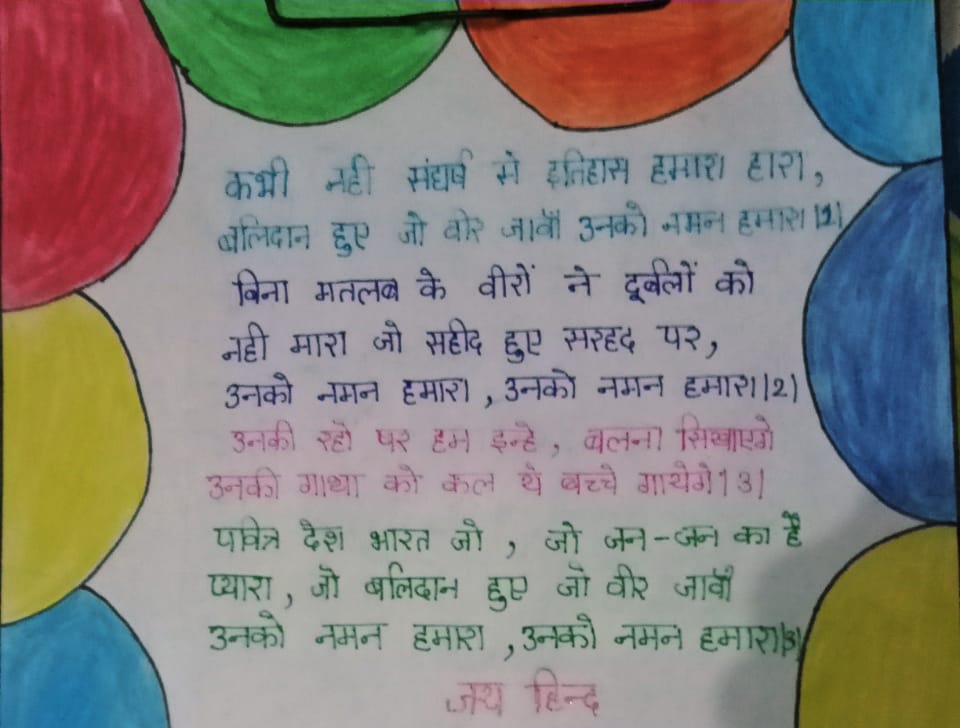 कभी नही संघर्ष से इतिहास हमारा हारा,
बलिदान हुए जो वीर जावाँ उनको नमन हमारा।1।
बिना मतलब के वीरों ने दूर्बलों को
नही मारा जो सहीद हुए सरहद पर,
उनको नमन हमारा, उनको नमन हमारा।।2।
उनकी रहो पर हम इन्हे, चलना सिखाएगे
उनकी गाथा को कल ये बच्चे गायेगे।3।
पवित्र देश भारत जो, जो जन-जन का है
प्यारा, जो बलिदान हुए जो वीर जावाँ
उनको नमन हमारा, उनको नमन हमारा।3।
जय हिन्द